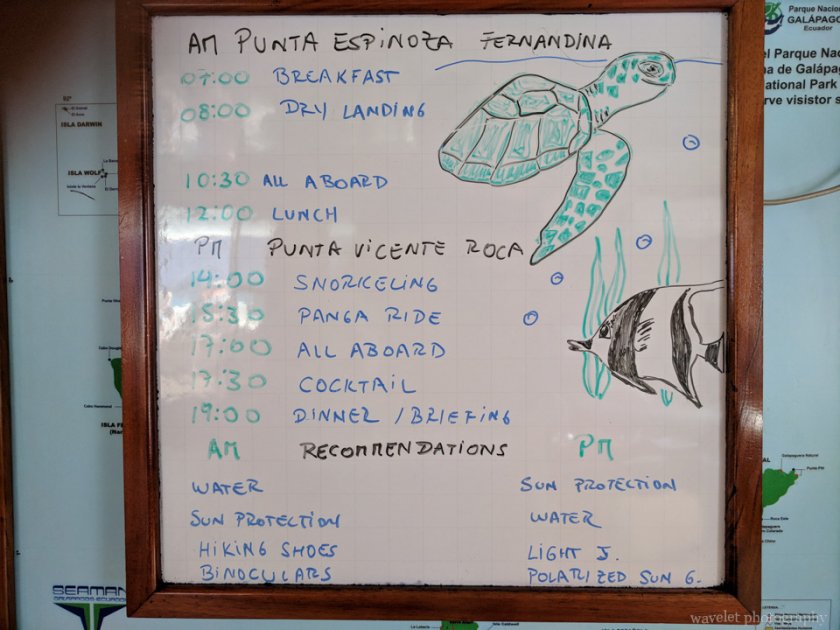 AM PUNTA ESPINOZA FERNANDINA
07:00 BREAKFAST
08:00 DRY LANDING
10:30 ALL ABOARD
12:00 LUNCH
PM PUNTA VICENTE ROCA
14:00 SNORKELING
15:30 PANGA RIDE
17:00 ALL ABOARD
17:30 COCKTAIL
19:00 DINNER / BRIEFING
AM RECOMMENDATIONS PM
WATER SUN PROTECTION
SUN PROTECTION WATER
HIKING SHOES LIGHT J.
BINOCULARS POLARIZED SUN G.
Parque Nacio
GALÁPAGO
Ecuador
el Parque Nac
na de Galápag
ational Park
erve visistor s
92°
ISLA DARWIN
ISLA WOLF
Cabo Hammond
ISLA FE
(Nar
SEAMAN
wavelet photography